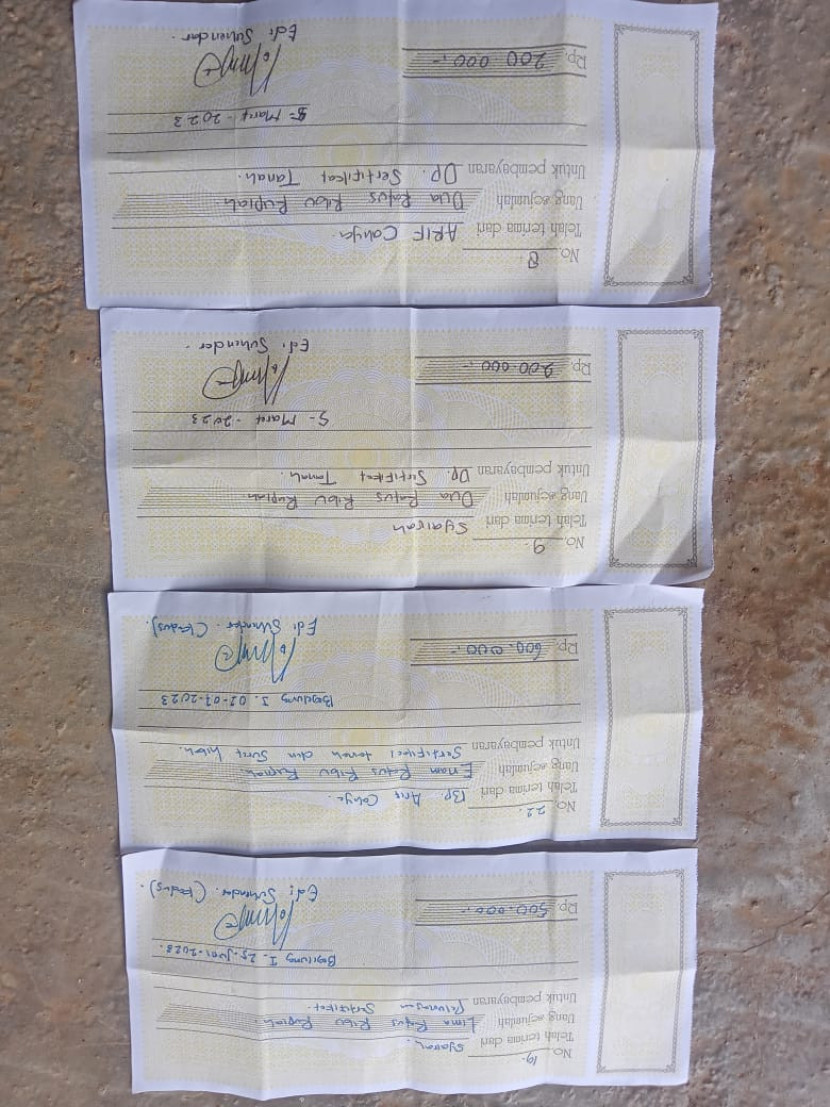 No. 19.
Telah terima dari
Uang sejumlah Lima Ratus Ribu Rupiah
Untuk pembayaran Pelunasan Sertifikat.
I. 25-Juni-2023.
Rp. 500.000,-
Edi Suhendar. (Kadus).
No. 22.
Telah terima dari Bp. Arif Cahya.
Uang sejumlah Enam Ratus Ribu Rupiah
Untuk pembayaran Sertifikat tanah dan Surat hibah.
02-07-2023
Rp. 600.000,-
Edi Suhendar. (Kadus).
No. 9.
Telah terima dari Syairah
Uang sejumlah Dua Ratus Ribu Rupiah
Untuk pembayaran Dp. Sertifikat Tanah.
5- Maret - 2023
Rp. 200.000,-
Edi Suhendar.
No. 8
Telah terima dari ARIF Cahya.
Uang sejumlah Dua Ratus Ribu Rupiah
Untuk pembayaran Dp. Sertifikat Tanah.
5- Maret - 2023
Rp. 200.000,-
Edi Suhendar.